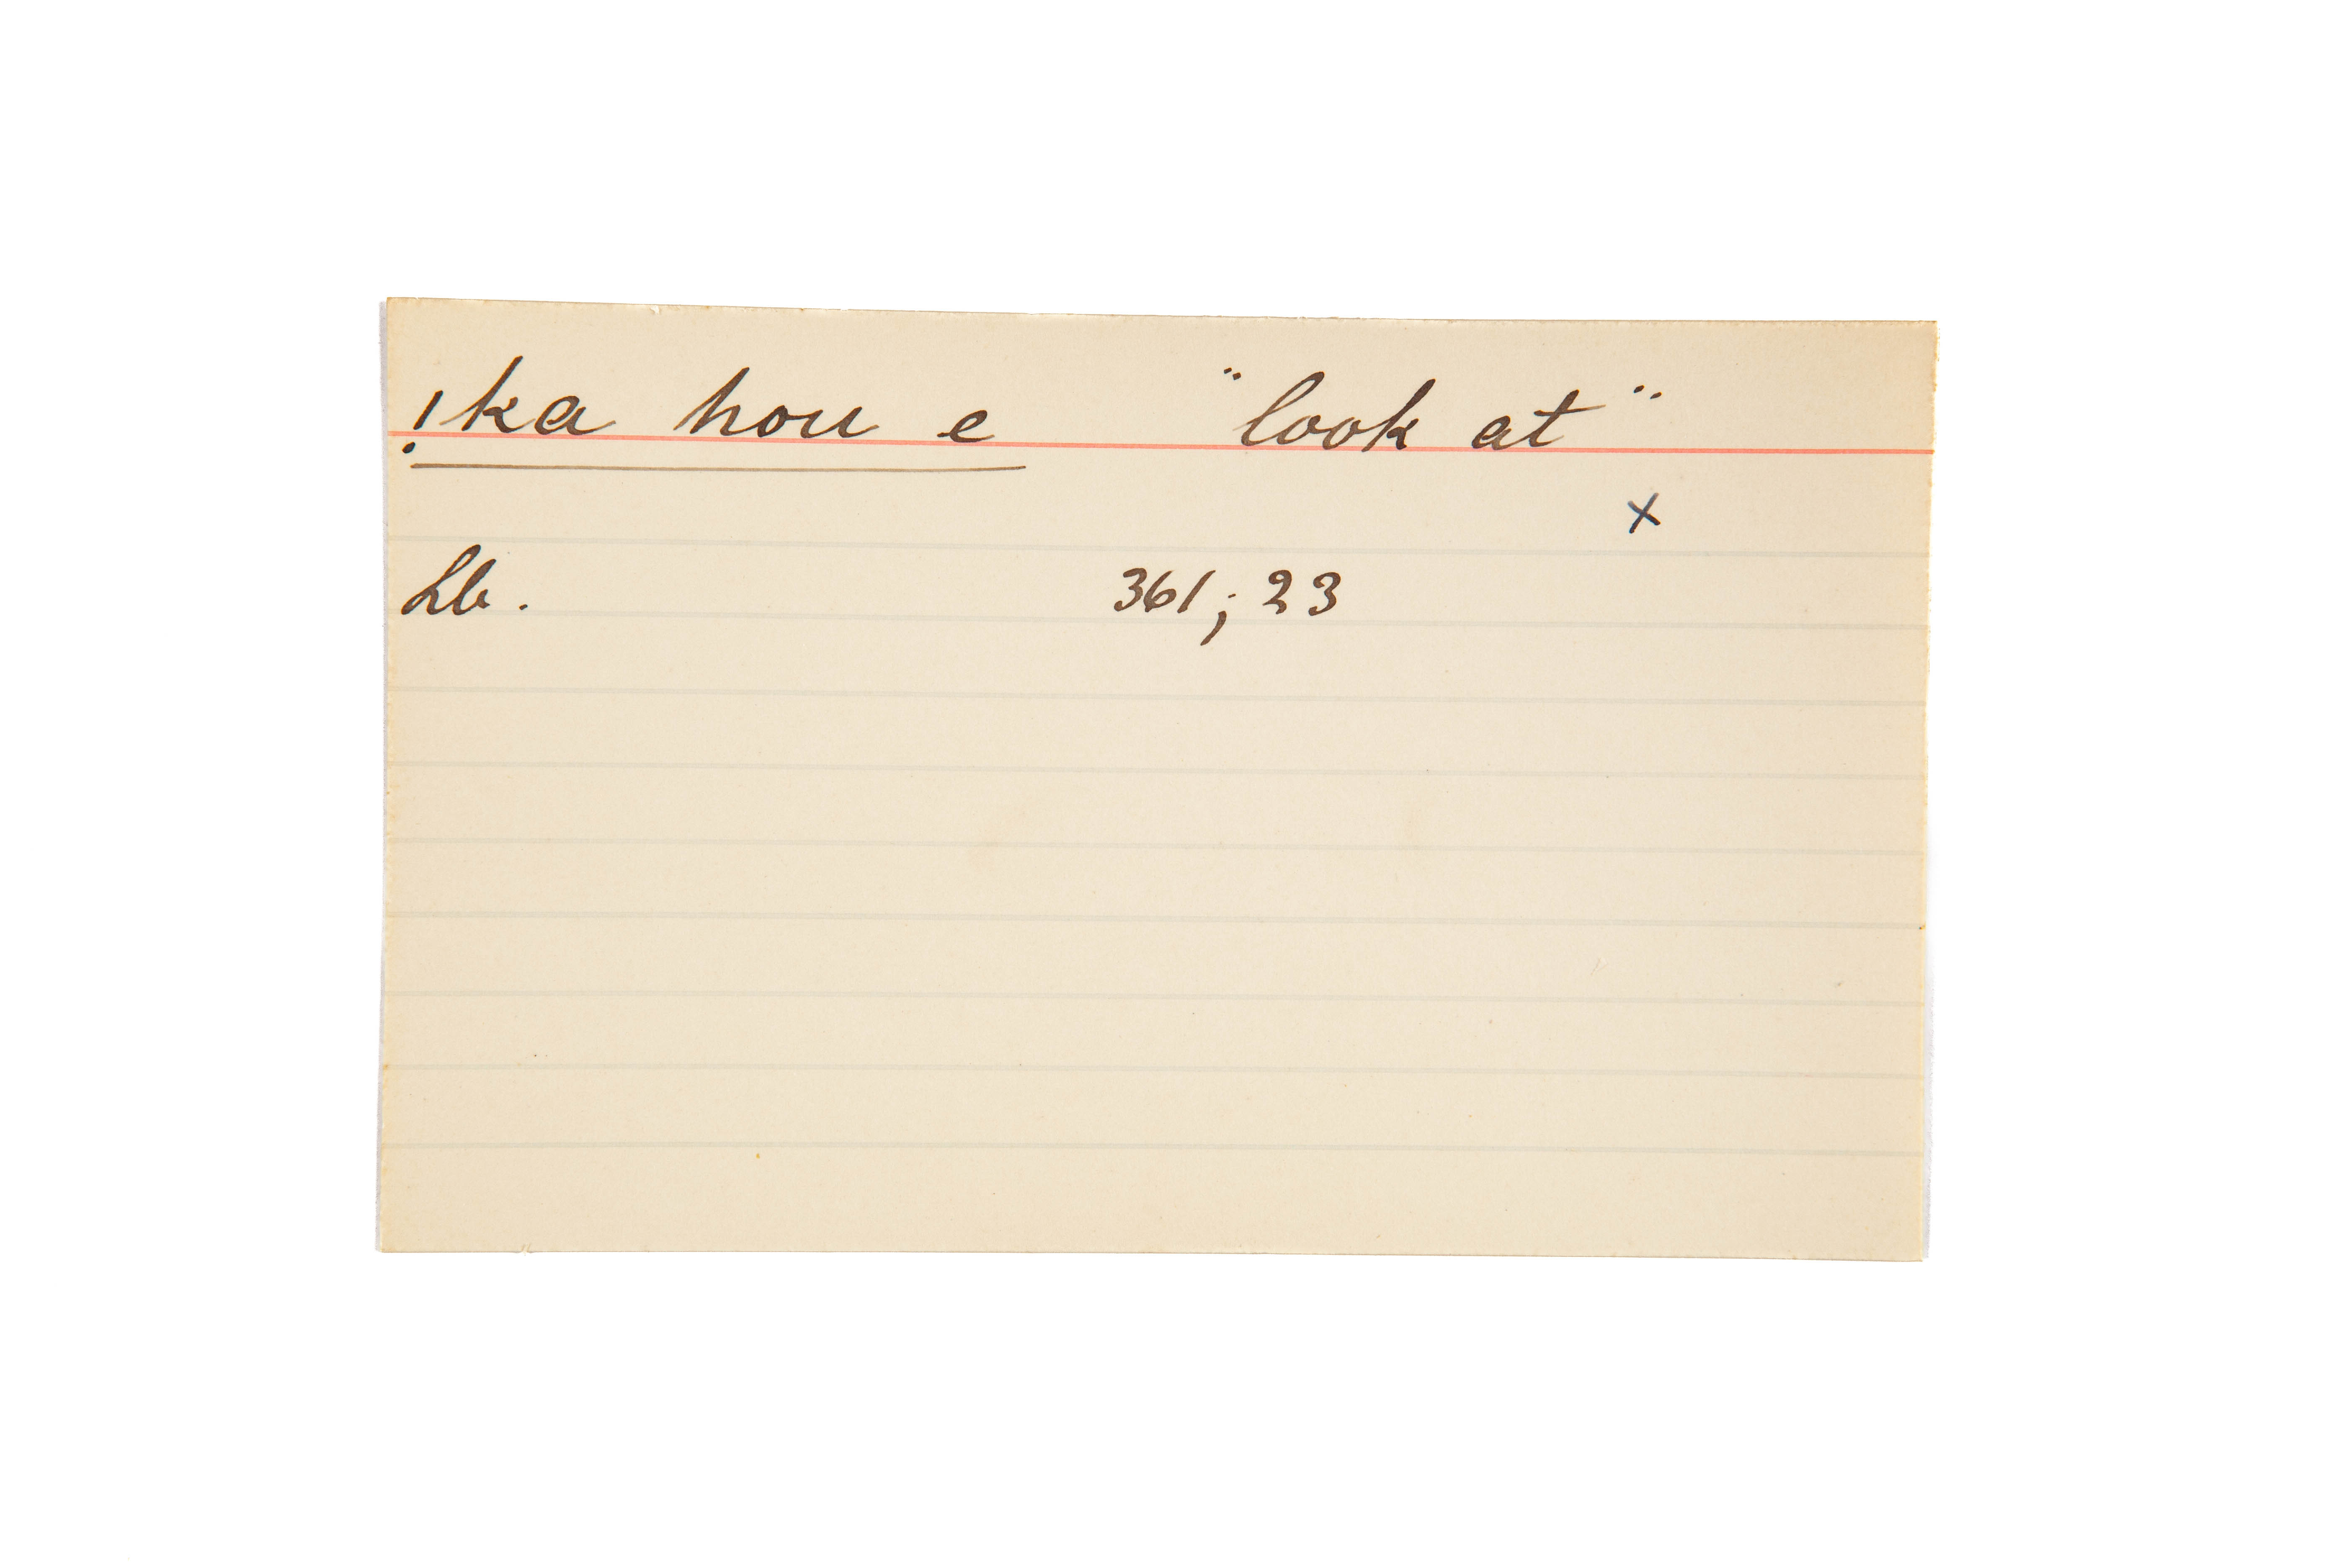 !ka hou e "look at"
x
Lb. 361; 23